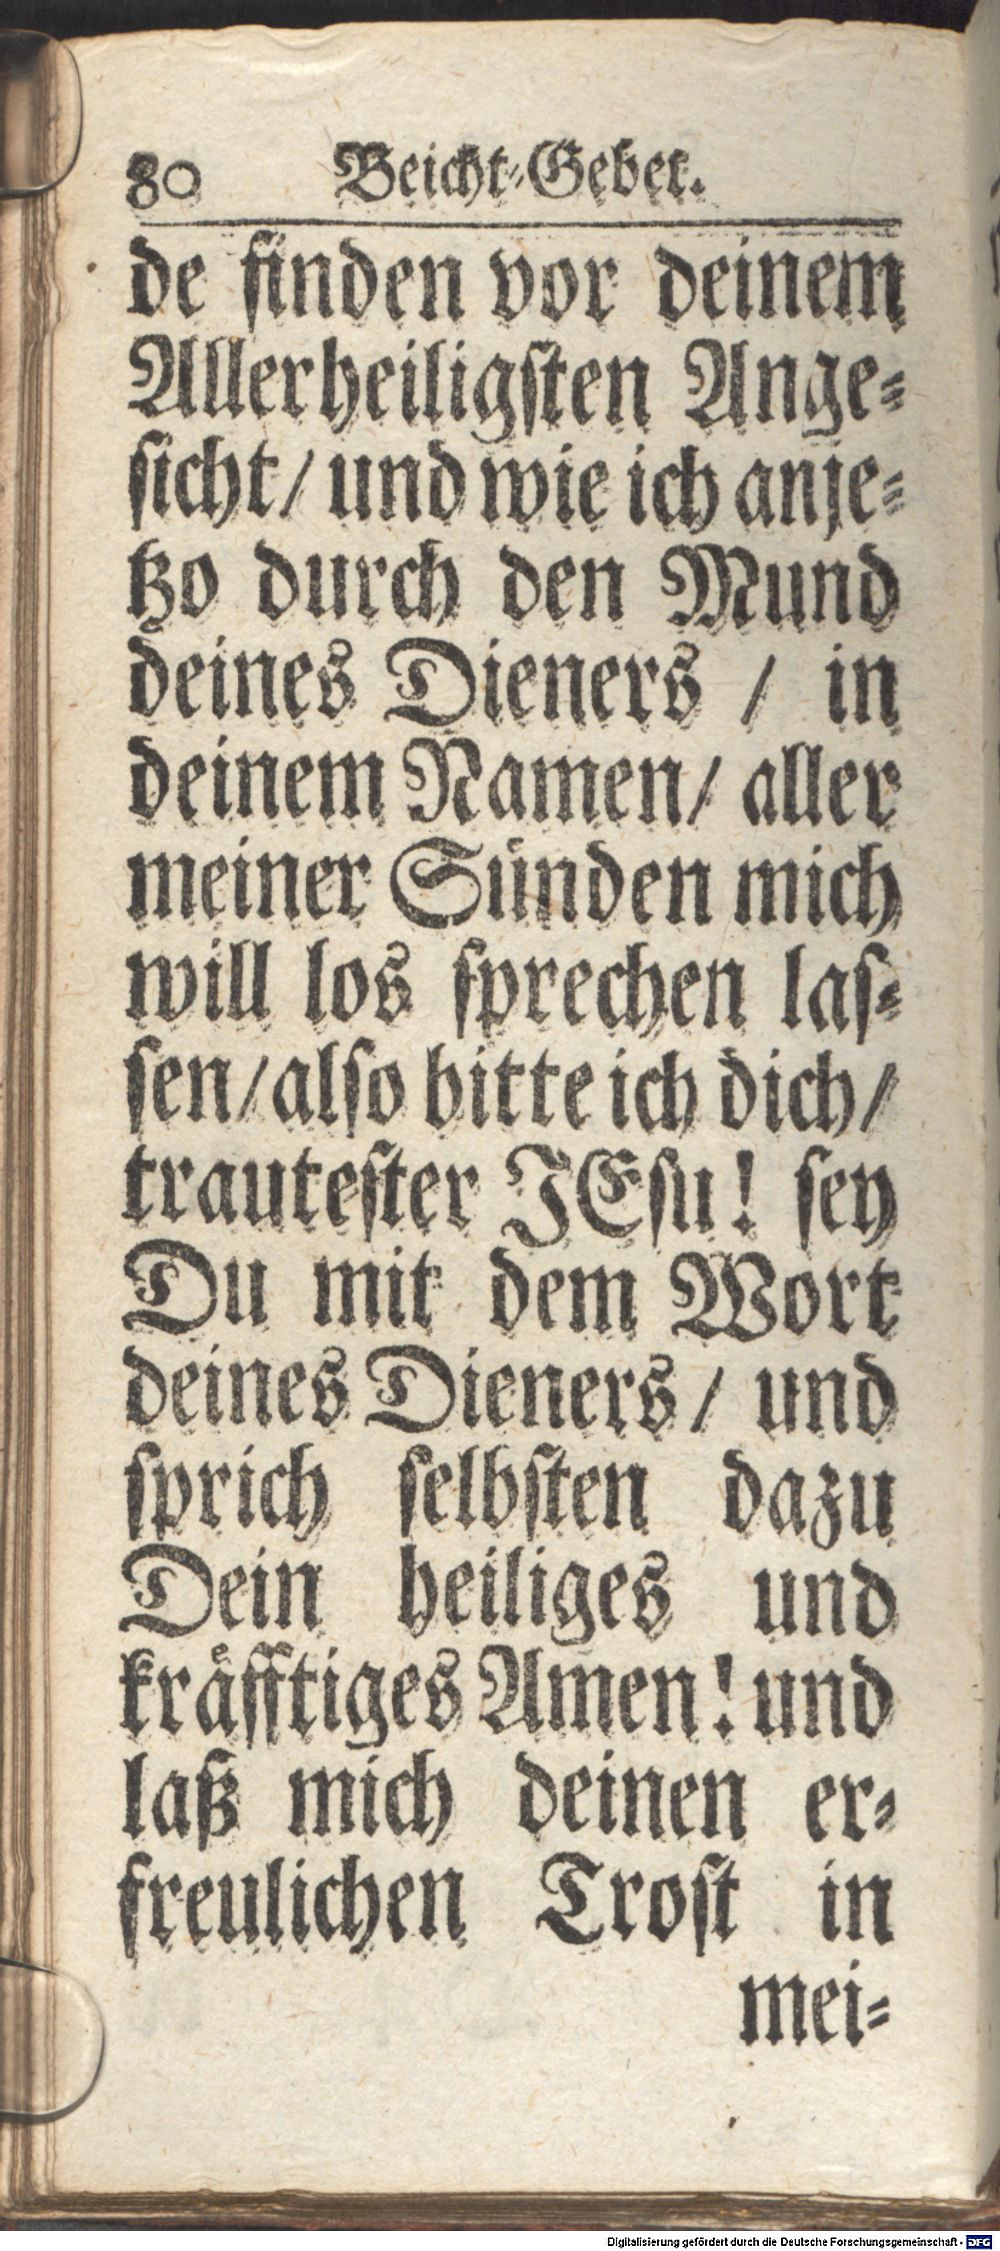 80 Beicht-Gebet.
de finden vor deinem
Allerheiligsten Ange-
sicht/ und wie ich anje-
tzo durch den Mund
deines Dieners / in
deinem Namen/ aller
meiner Sünden mich
will los sprechen las-
sen/ also bitte ich dich/
trautester JEsu! sey
Du mit dem Wort
deines Dieners/ und
sprich selbsten dazu
Dein heiliges und
kräfftiges Amen! und
laß mich deinen er-
freulichen Trost in
mei-
Digitalisierung gefördert durch die Deutsche Forschungsgemeinschaft - DFG